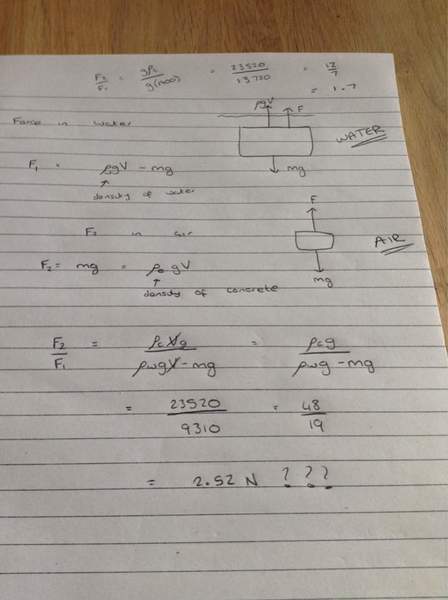 F₂/F₁ = gρc/g(1400) = 23520/13720 = 12/7
= 1.7
Force in water
ρgV F
WATER
mg
F₁ = ρgV - mg
density of water
F
F₂ in air
AIR
F₂ = mg = ρc gV
mg
density of concrete
F₂/F₁ = ρcVg/ρwgV-mg = ρcg/ρwg-mg
= 23520/9310 = 48/19
= 2.52 N ???